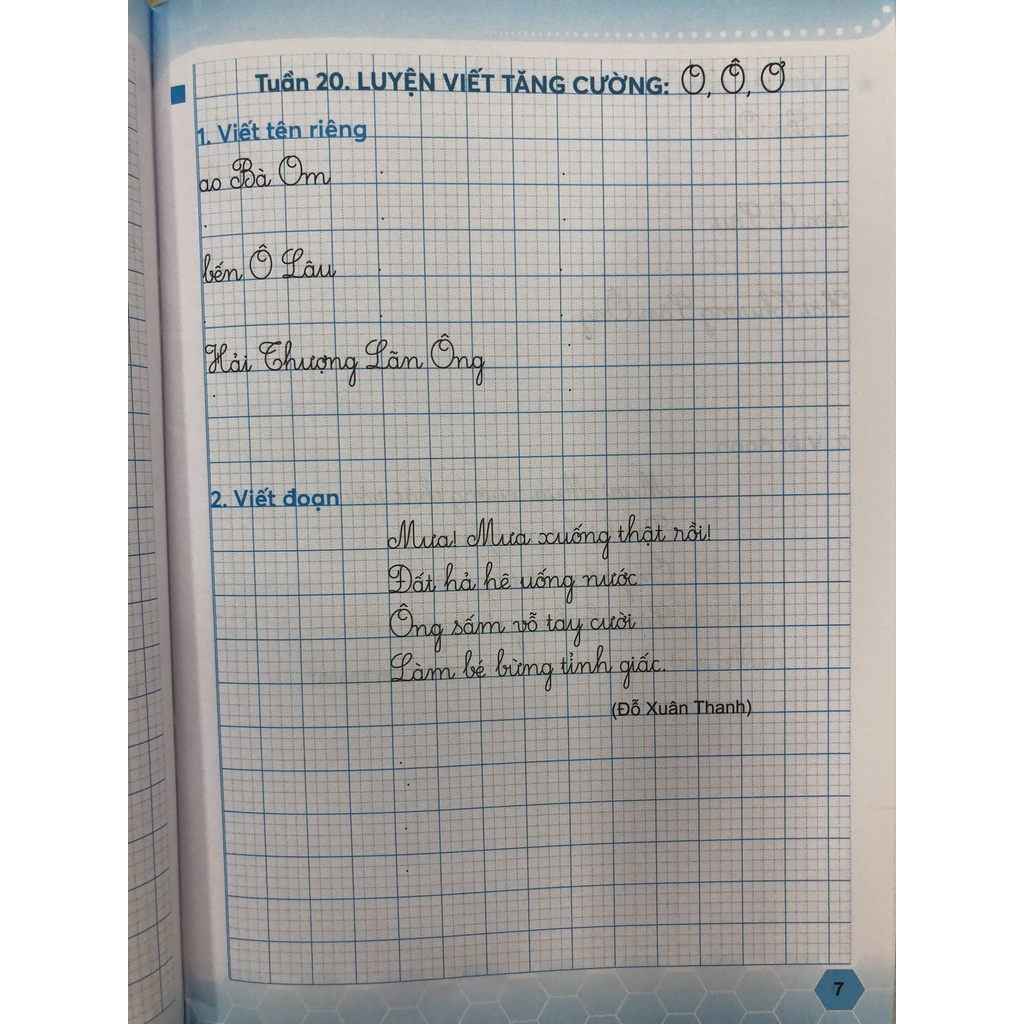 Tuần 20. LUYỆN VIẾT TĂNG CƯỜNG: O, Ô, Ơ
1. Viết tên riêng
ao Bà Om
bến Ô Lâu
Hải Thượng Lãn Ông
2. Viết đoạn
Mưa! Mưa xuống thật rồi!
Đất hả hê uống nước
Ông sấm vỗ tay cười
Làm bé bừng tỉnh giấc.
(Đỗ Xuân Thanh)
7